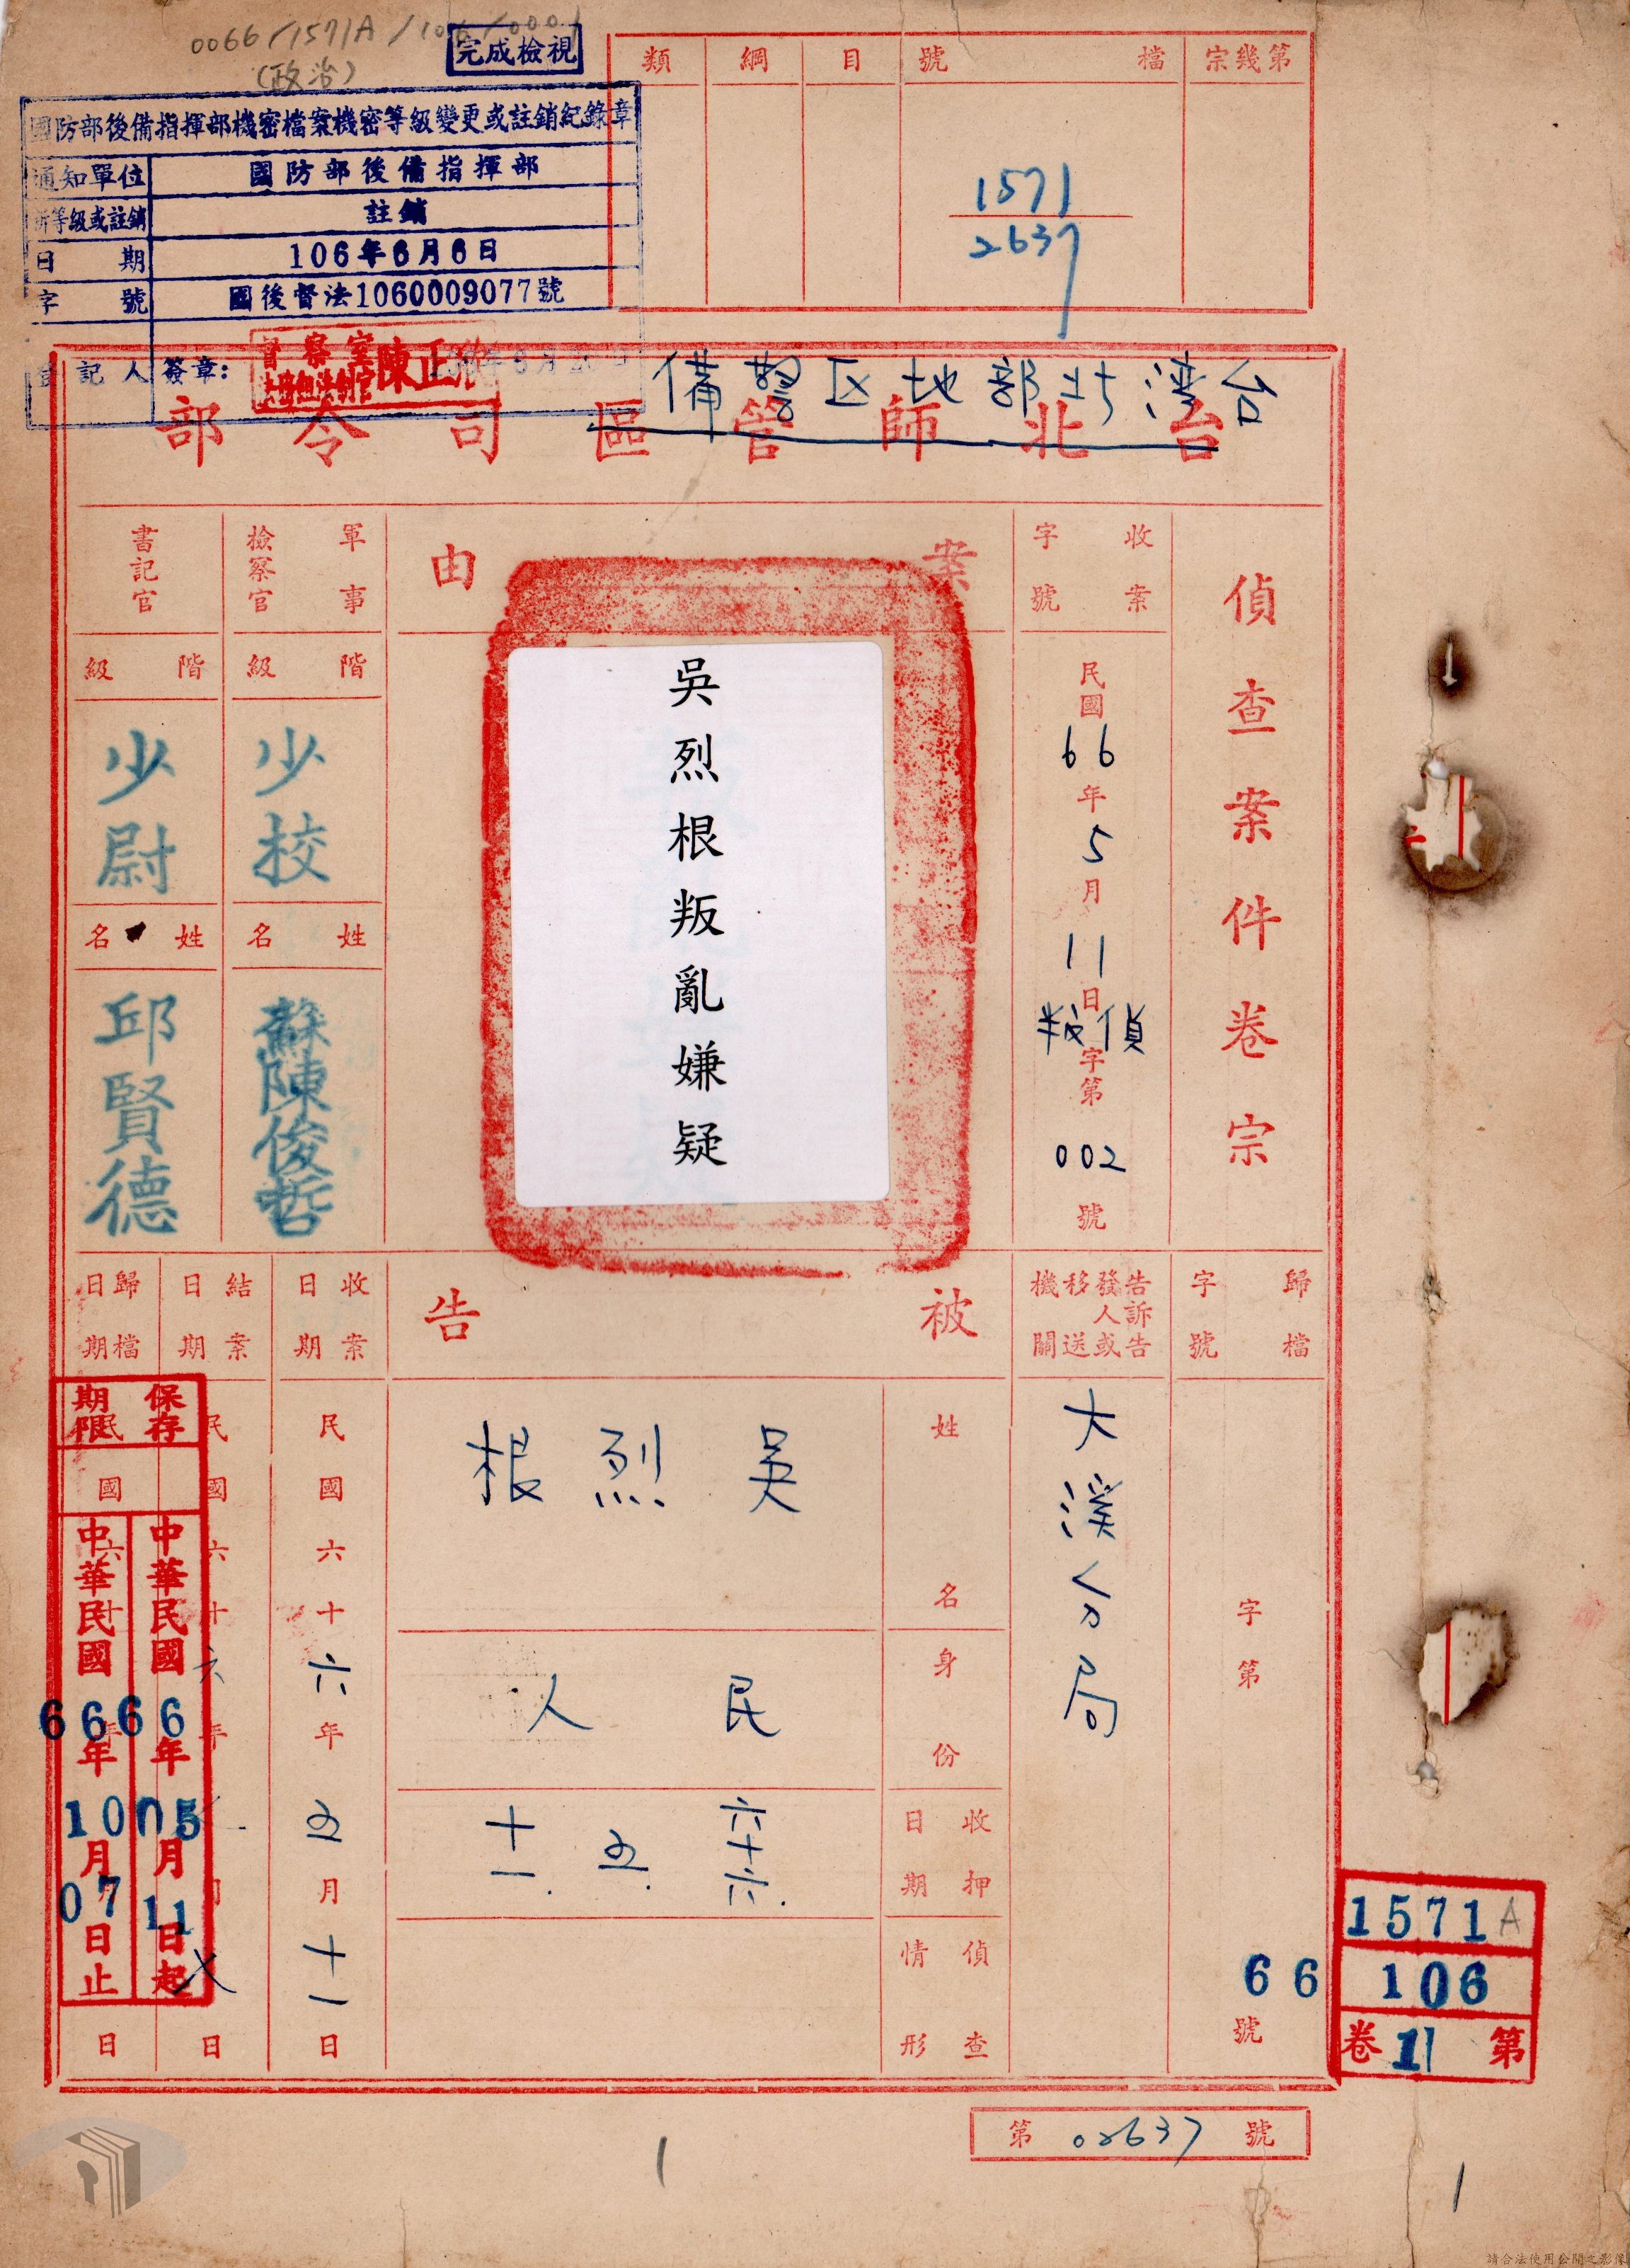 0066/1571A/106/0001
(政治)
完成檢視
國防部後備指揮部機密檔案機密等級變更或註銷紀錄章
通知單位 國防部後備指揮部
新等級或註銷 註銷
日期 106年6月6日
字號 國後督法1060009077號
登記人簽章：
督察室
陳正
第幾宗 檔號 目 綱 類
1571
2637
台湾北部地区警備
台北師管區司令部
偵查案件卷宗
收案字號
民國66年5月11日
偵叛字第002號
案由
吳烈根叛亂嫌疑
軍事檢察官
階級
少校
姓名
蘇陳俊哲
書記官
階級
少尉
姓名
邱賢德
歸檔字號
字第66號
告訴告發人或移送機關
大溪分局
被告
姓名
吳烈根
身份
民人
收押日期
六十六.五.十一.
偵查情形
收案日期
民國六十六年五月十一日
結案日期
民國六十六年
日
歸檔日期
民國六十年
日
保存期限
中華民國66年05月11日起
中華民國66年10月07日止
1571A
106
第11卷
第02637號
1
1
請合法使用公開之影像